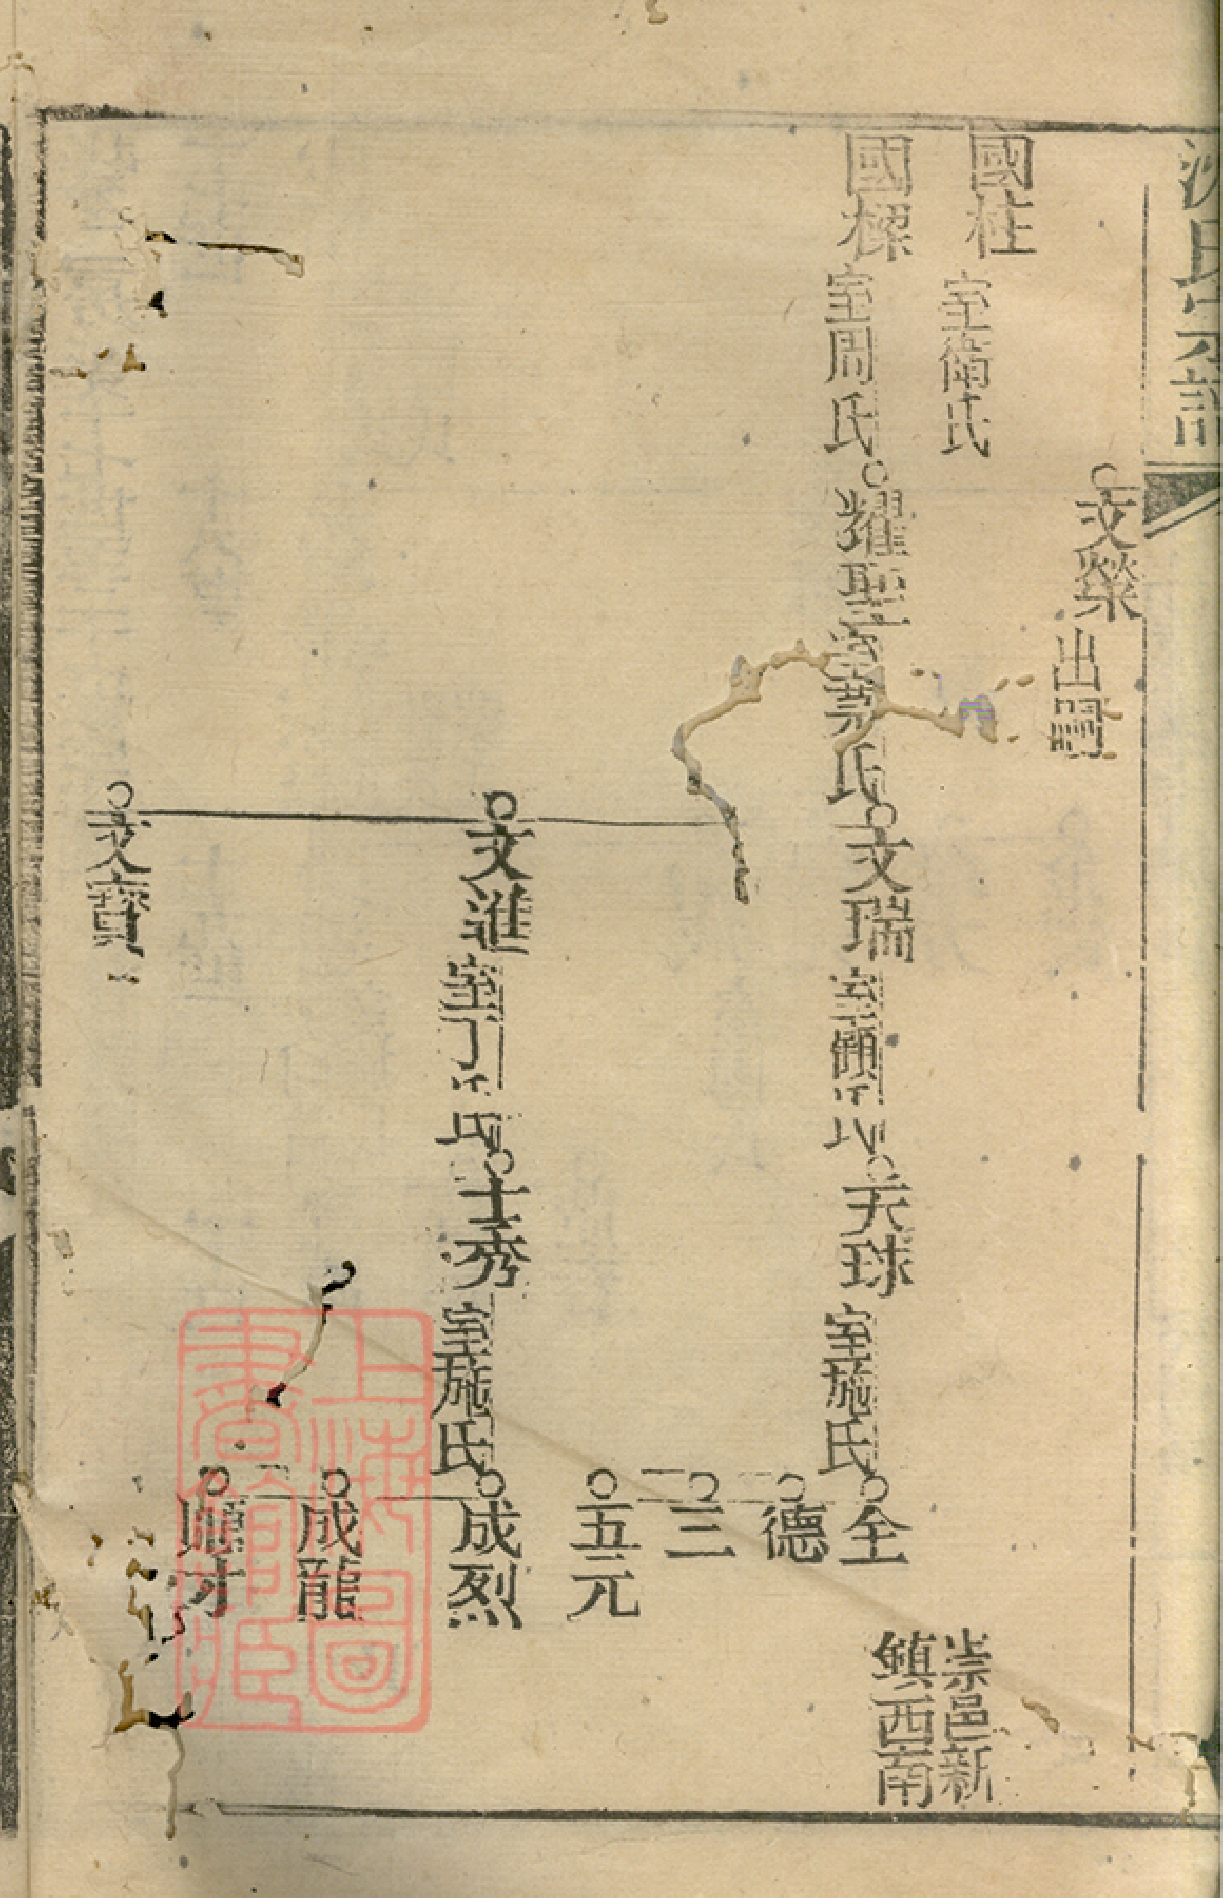 沈氏宗譜
文榮 出嗣
國柱 室衛氏
崇邑新
鎮西南
國樑 室周氏
耀聖 室蔡氏
文瑞 室顧氏
天球 室施氏
全
德
三
五元
文進 室丁氏
士秀 室施氏
成烈
成龍
文寶
上海圖書館藏